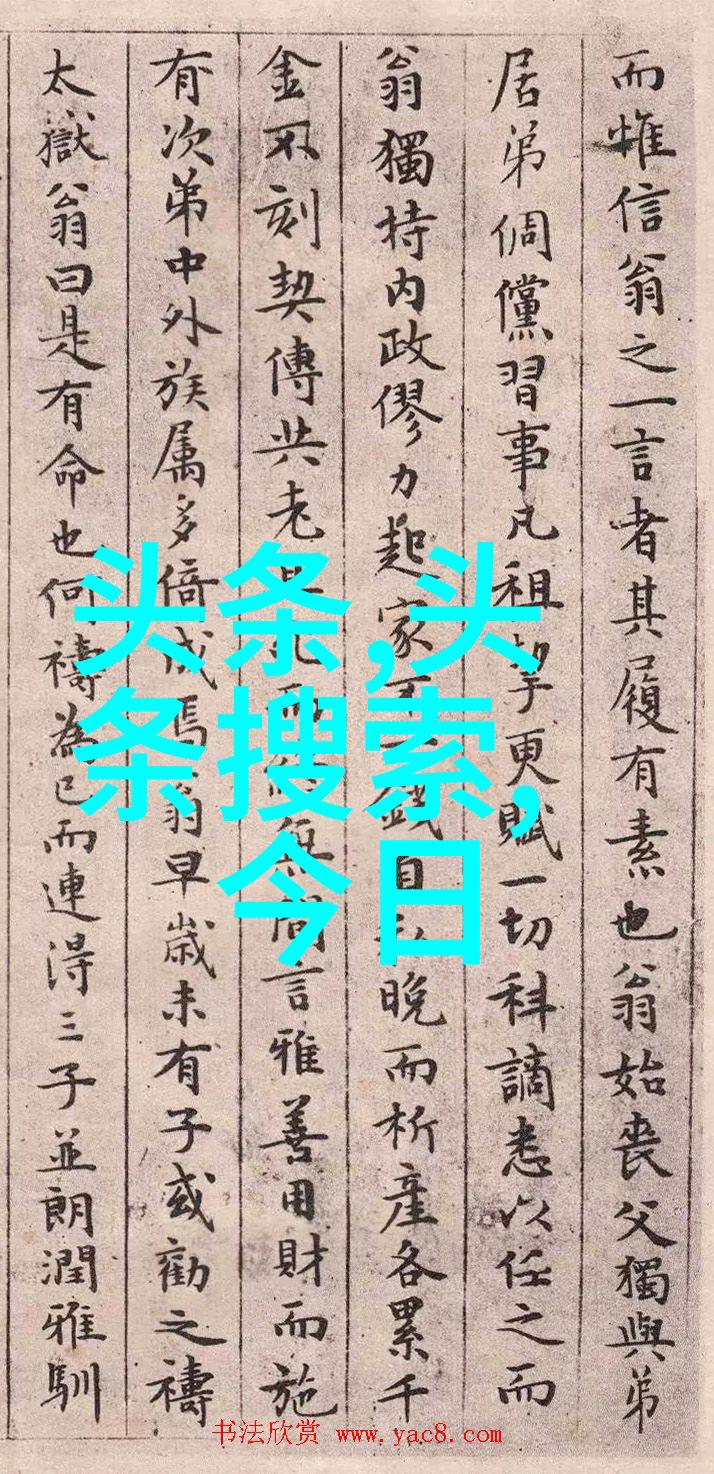 而惟信翁之一言者其履有素也翁始喪父獨與弟
居弟倜儻習事凡租挈更賦一切科謫悉以任之而
翁獨持内政僇力起家不錢自晚而析產各累千
金不刻契傳共老而無間言雅善用財而施
有次弟中外族属多倚成焉翁早歲未有子或勸之禱
太嶽翁曰是有命也何禱為已而連得三子並朗潤雅馴
头条,头
条搜索,
今日
书法欣赏 www.yac8.com